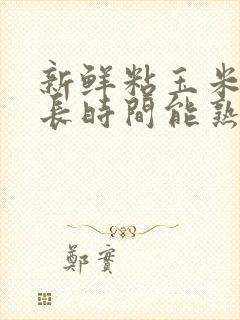 新鲜粘玉米
長時間能熟
鄭實